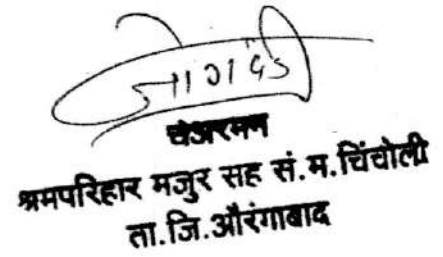 चेअरमन
श्रमपरिहार मजुर सह सं.म.चिंचोली
ता.जि.औरंगाबाद